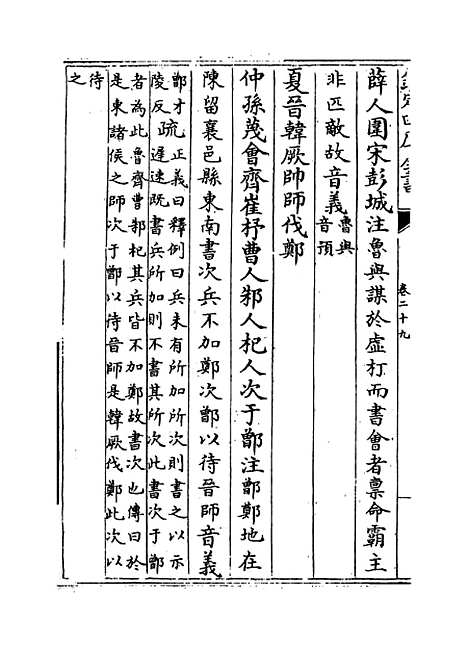 欽定四庫全書
卷二十九
薛人圍宋彭城注魯與謀於虛朾而書會者禀命霸主
非匹敵故音義魯與
音預
夏晉韓厥帥師伐鄭
仲孫蔑會齊崔杼曹人邾人杞人次于鄫注鄫鄭地在
陳留襄邑縣東南書次兵不加鄭次鄫以待晉師音義
鄫才疏正義曰釋例曰兵未有所加所次則書之以示
陵反遲速既書兵所加則不書其所次此書次于鄫
者為此魯齊曹邾杞其兵皆不加鄭故書次也傳曰於
是東諸侯之師次于鄫以待晉師是韓厥伐鄭此次以
待
之